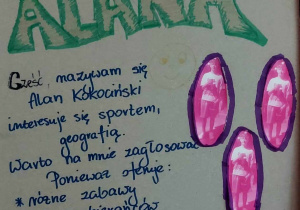 ALANA
Cześć, nazywam się
Alan Kokociński
interesuje się sportem,
geografią.
Warto na mnie zagłosować
Ponieważ oferuje:
* różne zabawy